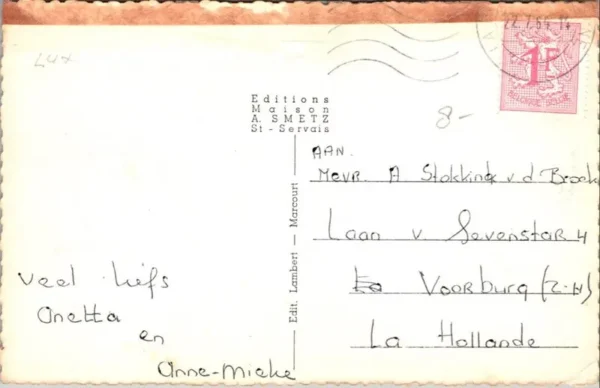 Lux
22.7.64.14
1F
BELGIQUE-BELGIË
8-
Editions
Maison
A. SMETZ
St-Servais
Edit. Lambert — Marcourt
AAN.
Mevr. A Stokking v d Broek
Laan v. Sevenstar 4
Voorburg (Z-H)
La Hollande
Veel liefs
Anetta
en
Anne-Mieke